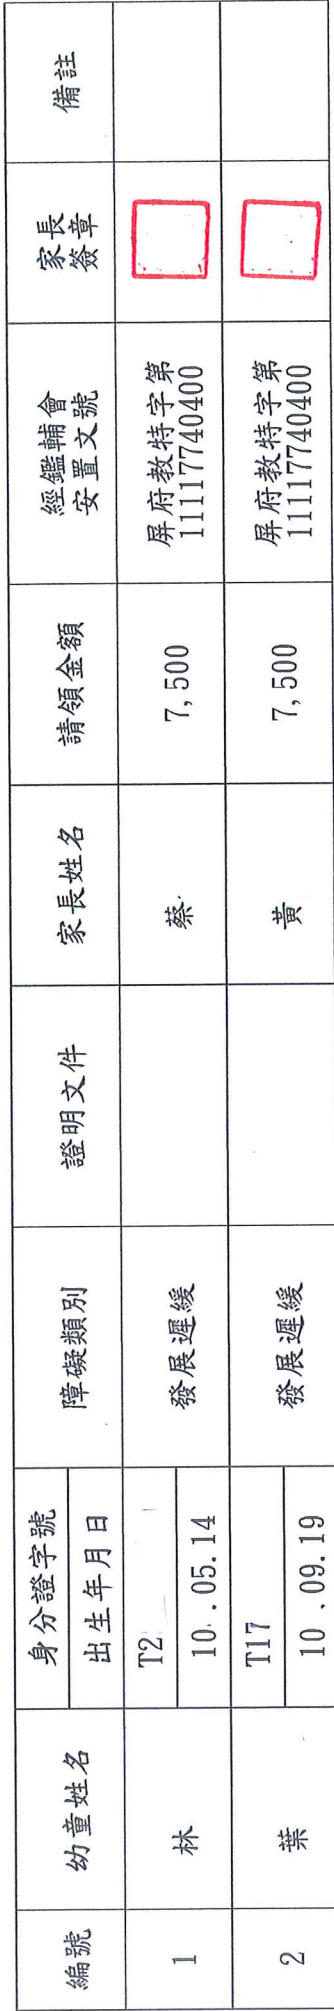 編號
幼童姓名
身分證字號
出生年月日
障礙類別
證明文件
家長姓名
請領金額
經鑑輔會
安置文號
家長
簽章
備註
1
林
T2
10 .05.14
發展遲緩
蔡
7,500
屏府教特字第
11117740400
2
葉
T17
10 .09.19
發展遲緩
黃
7,500
屏府教特字第
11117740400